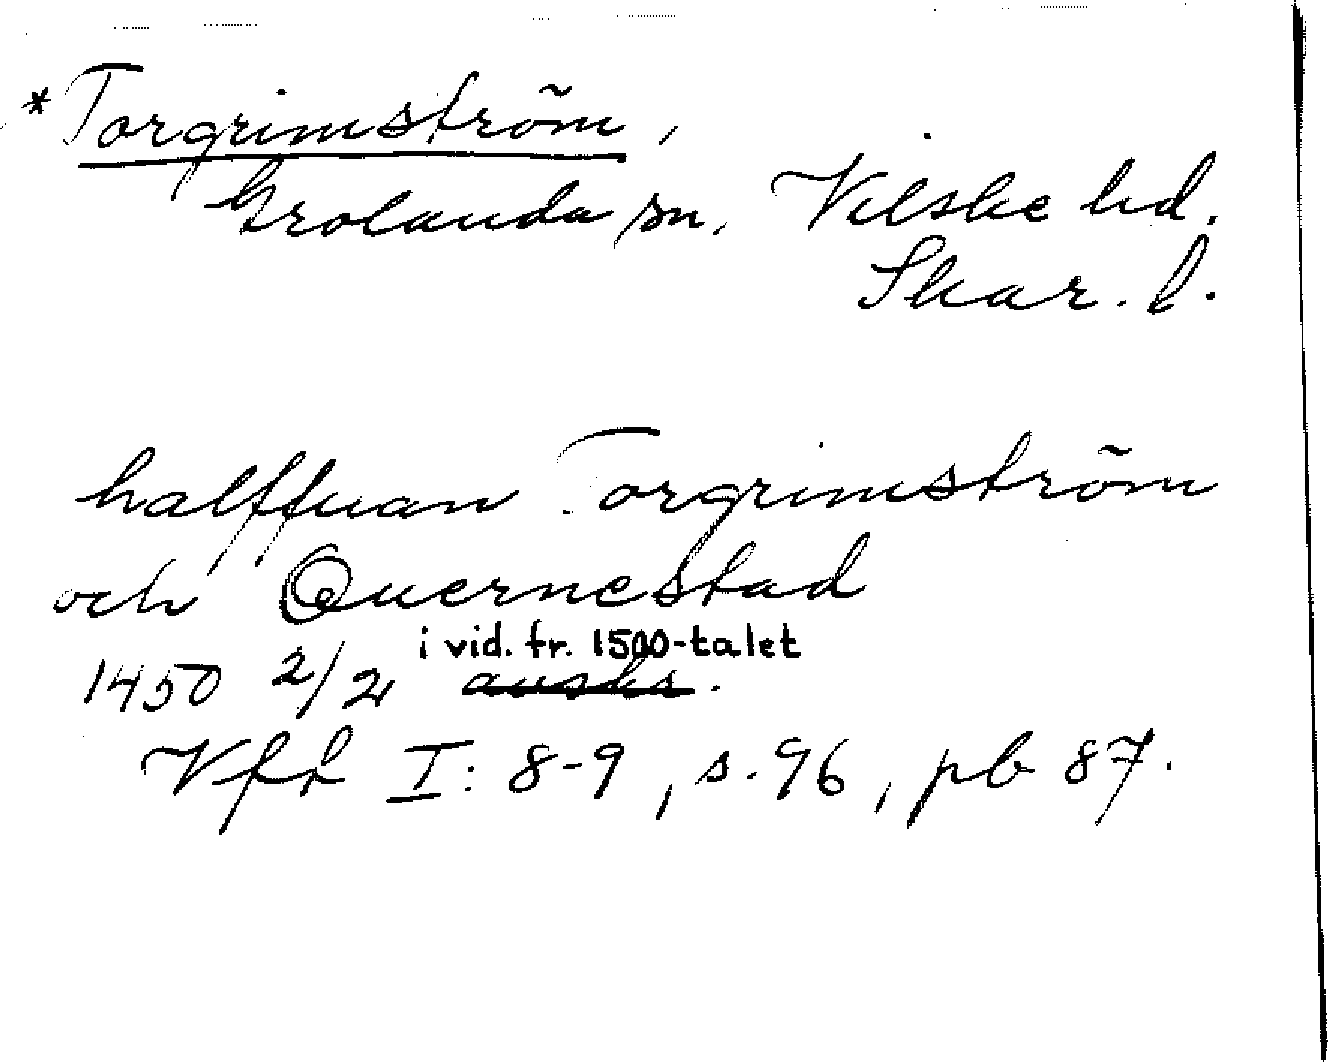 *Torgrimström,
Grolanda sn, Vilske hd.
Skar. l.
halffuan Torgrimström
och Quernestad
i vid. fr. 1500-talet
1450 2/2 avskr.
Vft I: 8-9, s. 96, pb 87.